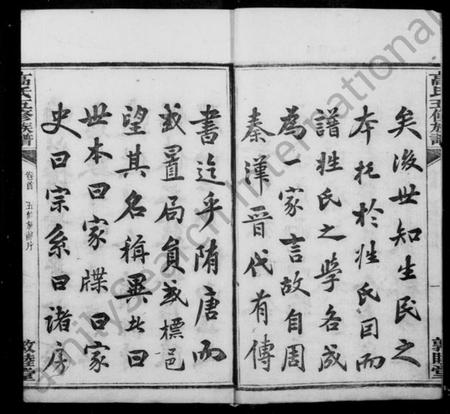 高氏五修族譜
敦睦堂
矣後世知生民之
本托於姓氏因而
譜姓氏之學各成
為一家言故自周
秦漢晉代有傳
書迄乎隋唐而
或置局員或標邑
望其名稱異於曰
世本曰家牒曰家
史曰宗系曰諸房
高氏五修族譜
卷首
敦睦堂
FamilySearch International